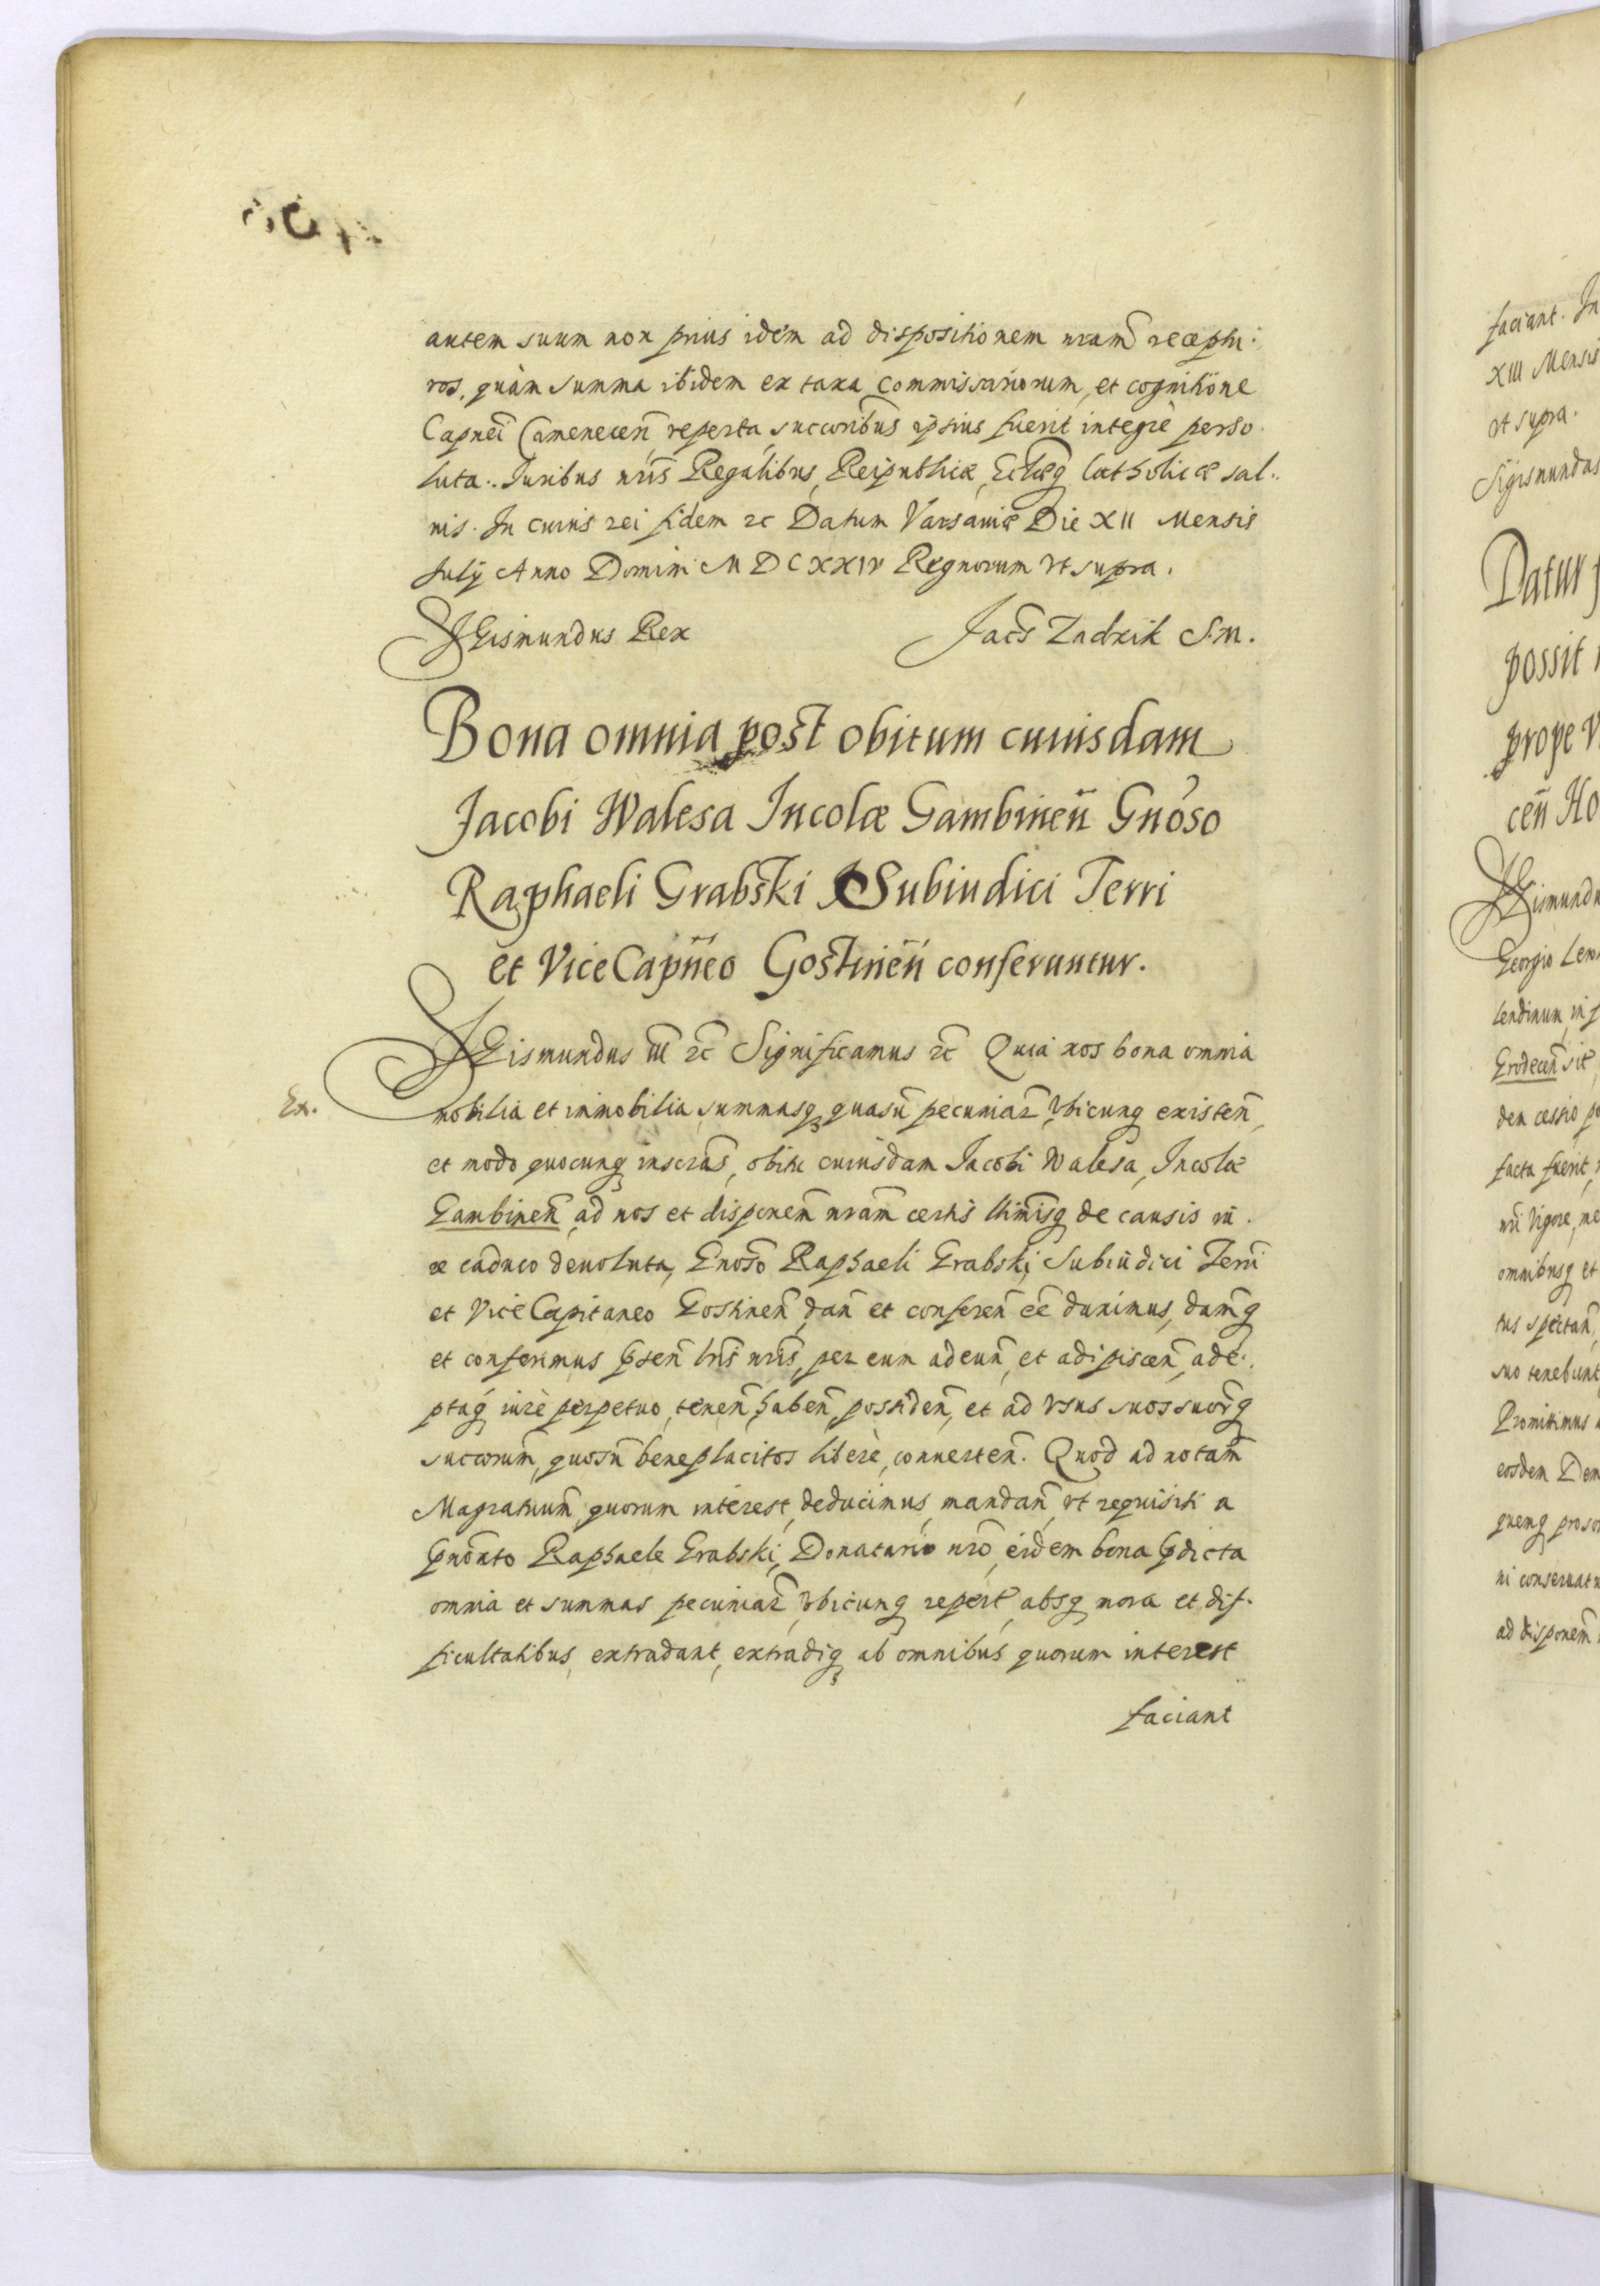 autem suum non prius idem ad dispositionem nram̃ recepti·
ros, quàm summa ibidem ex taxa Commissariorum, et cognitione
Capnei Camenecen̄ reperta, succoribus ipsius fuerit integrè perso·
luta. Iuribus nr̃is Regalibus, Reipublicæ, Ecclæq Catholicæ sal·
uis. In cuius rei fidem ꝛc Datum Varsauiæ Die XII Mensis
Iulÿ Anno Domini MDCXXIV Regnorum vt supra.
SIGismundus Rex Jacs̃ Zadzik S.M.
Bona omnia post obitum cuiusdam
Jacobi Walesa Incolæ Gambinen̄ Gnõso
Raphaeli Grabski Subiudici Terri
et ViceCapn̄eo Gostinen̄ conferuntur.
SIGismundus III ꝛc Significamus ꝛc Quia nos bona omnia
Ex. mobilia et immobilia, summasq quasũ pecuniar̃, vbicunq existen̄,
et modo quocunq inscrās, obitu cuiusdam Iacobi Walesa, Incolæ
Gambinen̄ ad nos et disponem̃ nram̃ certis ltimĩsq de causis iu·
re caduco deuoluta, Gnoso Raphaeli Grabski, Subiudici Terri
et ViceCapitaneo Gostinen̄, dan̄ et conferen̄ eẽ duximus, damq̃
et conferimus p̃sen̄ lr̃is nr̃is, per eum adeun̄, et adipiscen̄, ade·
ptaq iurè perpetuo, tenen̄, haben̄, possiden̄, et ad vsus suos suorq̃
succorum̃, quosũ beneplacitos liberè, conuerten̄. Quod ad notam̃
Magratuum̃, quorum interest, deducimus, mandan̄, vt requisiti a
p̃nõato Raphaele Grabski, Donatario nr̃o, eidem bona p̃dicta
omnia et summas pecuniar̃, vbicunq repert̃, absq mora et dif·
ficultatibus, extradant, extradiq ab omnibus quorum interest
faciant
faciant. In
XIII Mensis
vt supra.
Sigismundus
Datur
possit
prope
cen̄
SIGismundu
Georgio
Grodecen̄ sit
dem cessio
facta fuerit
nr̃i vigore, ne
omnibusq et
tus spectan̄,
suo tenebunt
Promittimus
eosdem
quenq
ni conseruat
ad disponem̃